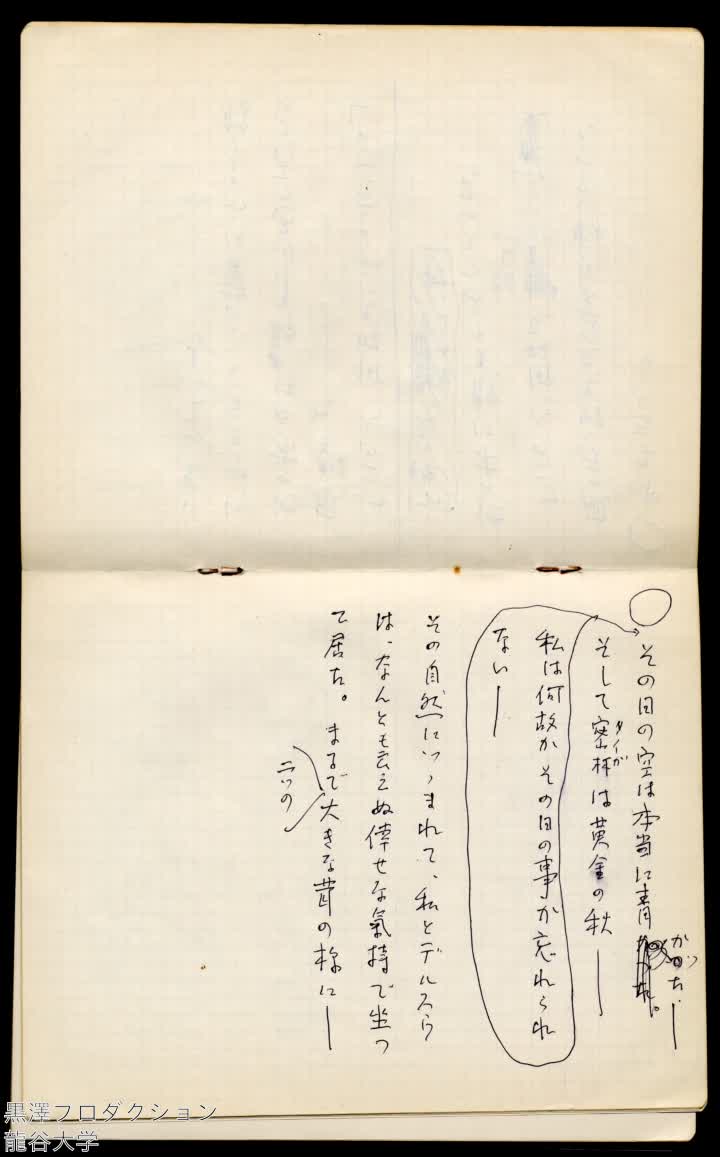 その日の空は本当に青
かった.―
そして密林は黄金の秋―
タイガ
私は何故かその日の事が忘れられ
ない―
その自然につゝまれて、私とデルスウ
は、なんとも云えぬ倖せな氣持で坐っ
て居た。まるで大きな茸の様に―
二つの
黒澤プロダクション
龍谷大学